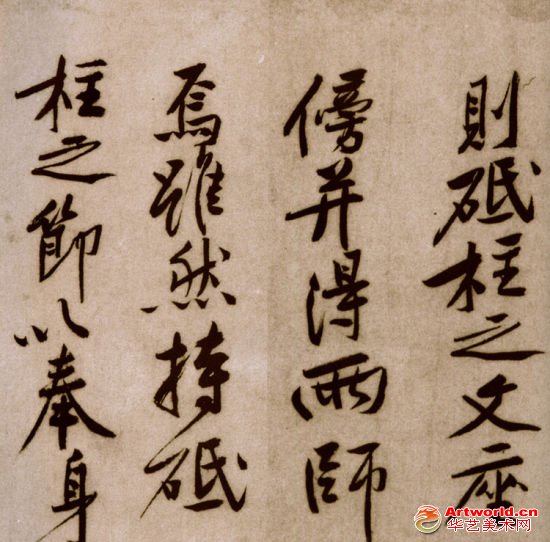 則砥柱之文座
傍并得兩師
焉雖然持砥
柱之節以奉身
Artworld.cn
华艺美术网